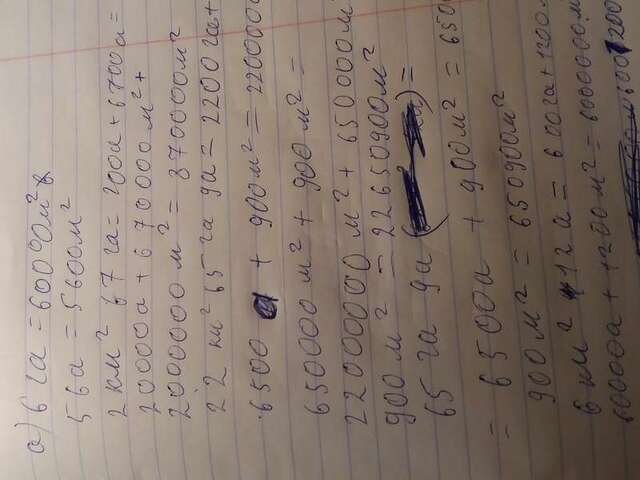 а) 6 га = 60000м²
56а = 5600м²
2 км² 67 га = 200а + 6700а =
20000а + 670000 м² +
2000000 м² = 870000м²
22 км² 65 га 9а = 2200 га +
6500 а + 900м² = 2200000
650000 м² + 900 м² =
22000000 м² + 650000 м²
900 м² = 22650900м²
65 га 9а ( ) =
= 6500а + 900м² = 650
900 м² = 650900м²
6 км² 12 а = 600га + 1200м
60000а + 1200м² = 6000000м
6001200